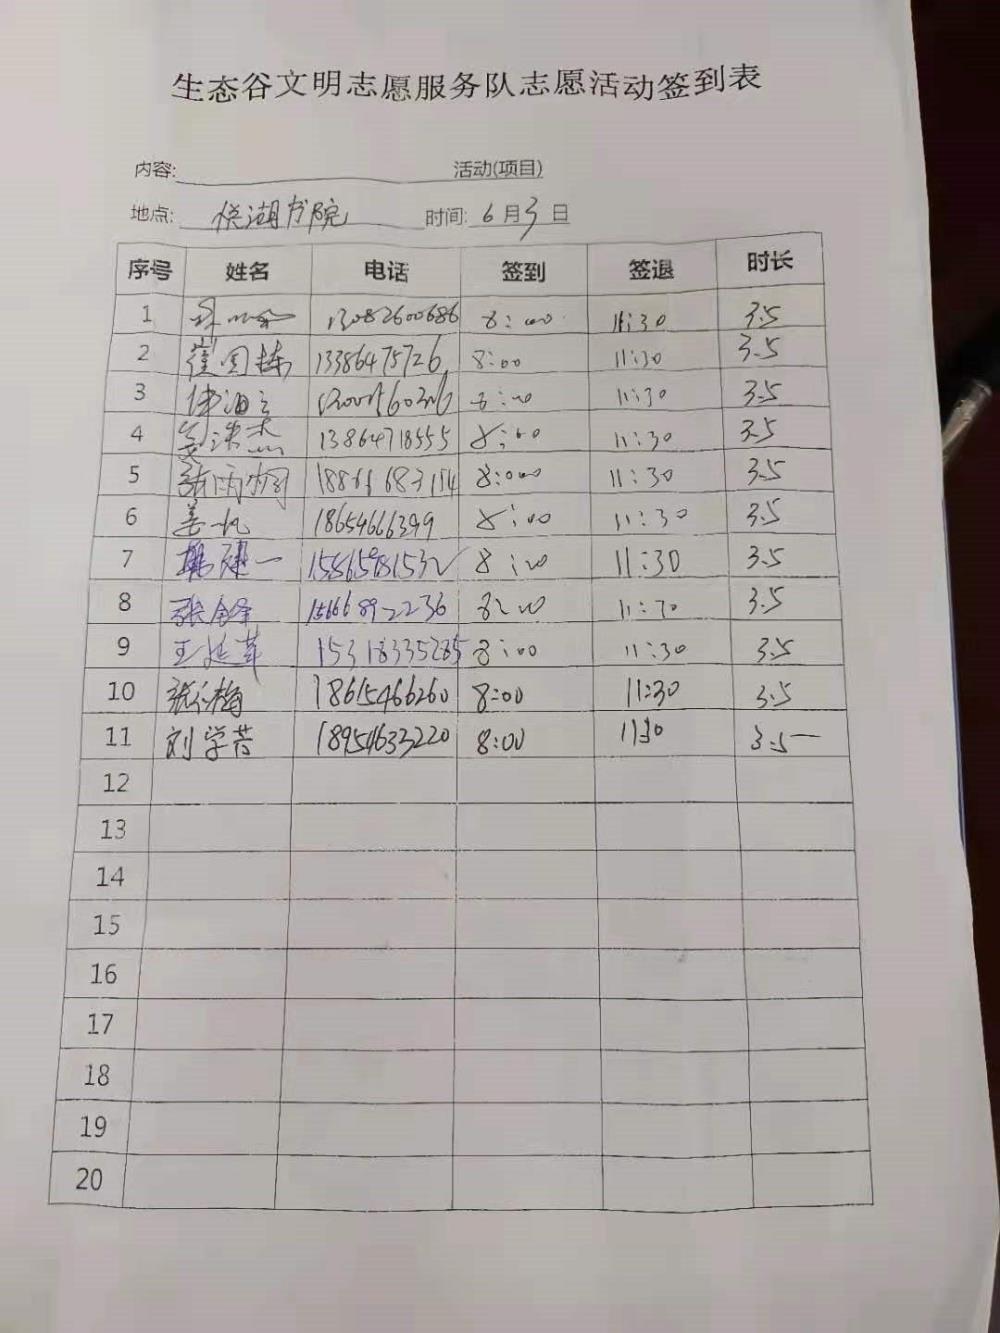 生态谷文明志愿服务队志愿活动签到表
内容: 活动(项目)
地点: 悦湖书院 时间: 6月3日
序号 姓名 电话 签到 签退 时长
1 13082600686 8:00 11:30 3.5
2 崔国栋 13386475726 8:00 11:30 3.5
3 8:00 11:30 3.5
4 13864718555 8:00 11:30 3.5
5 8:00 11:30 3.5
6 姜帆 18654666399 8:00 11:30 3.5
7 韩建一 15865981532 8:00 11:30 3.5
8 15666892236 8:00 11:30 3.5
9 王延革 15318335285 8:00 11:30 3.5
10 18615466260 8:00 11:30 3.5
11 刘学苔 18954633220 8:00 1130 3.5
12
13
14
15
16
17
18
19
20